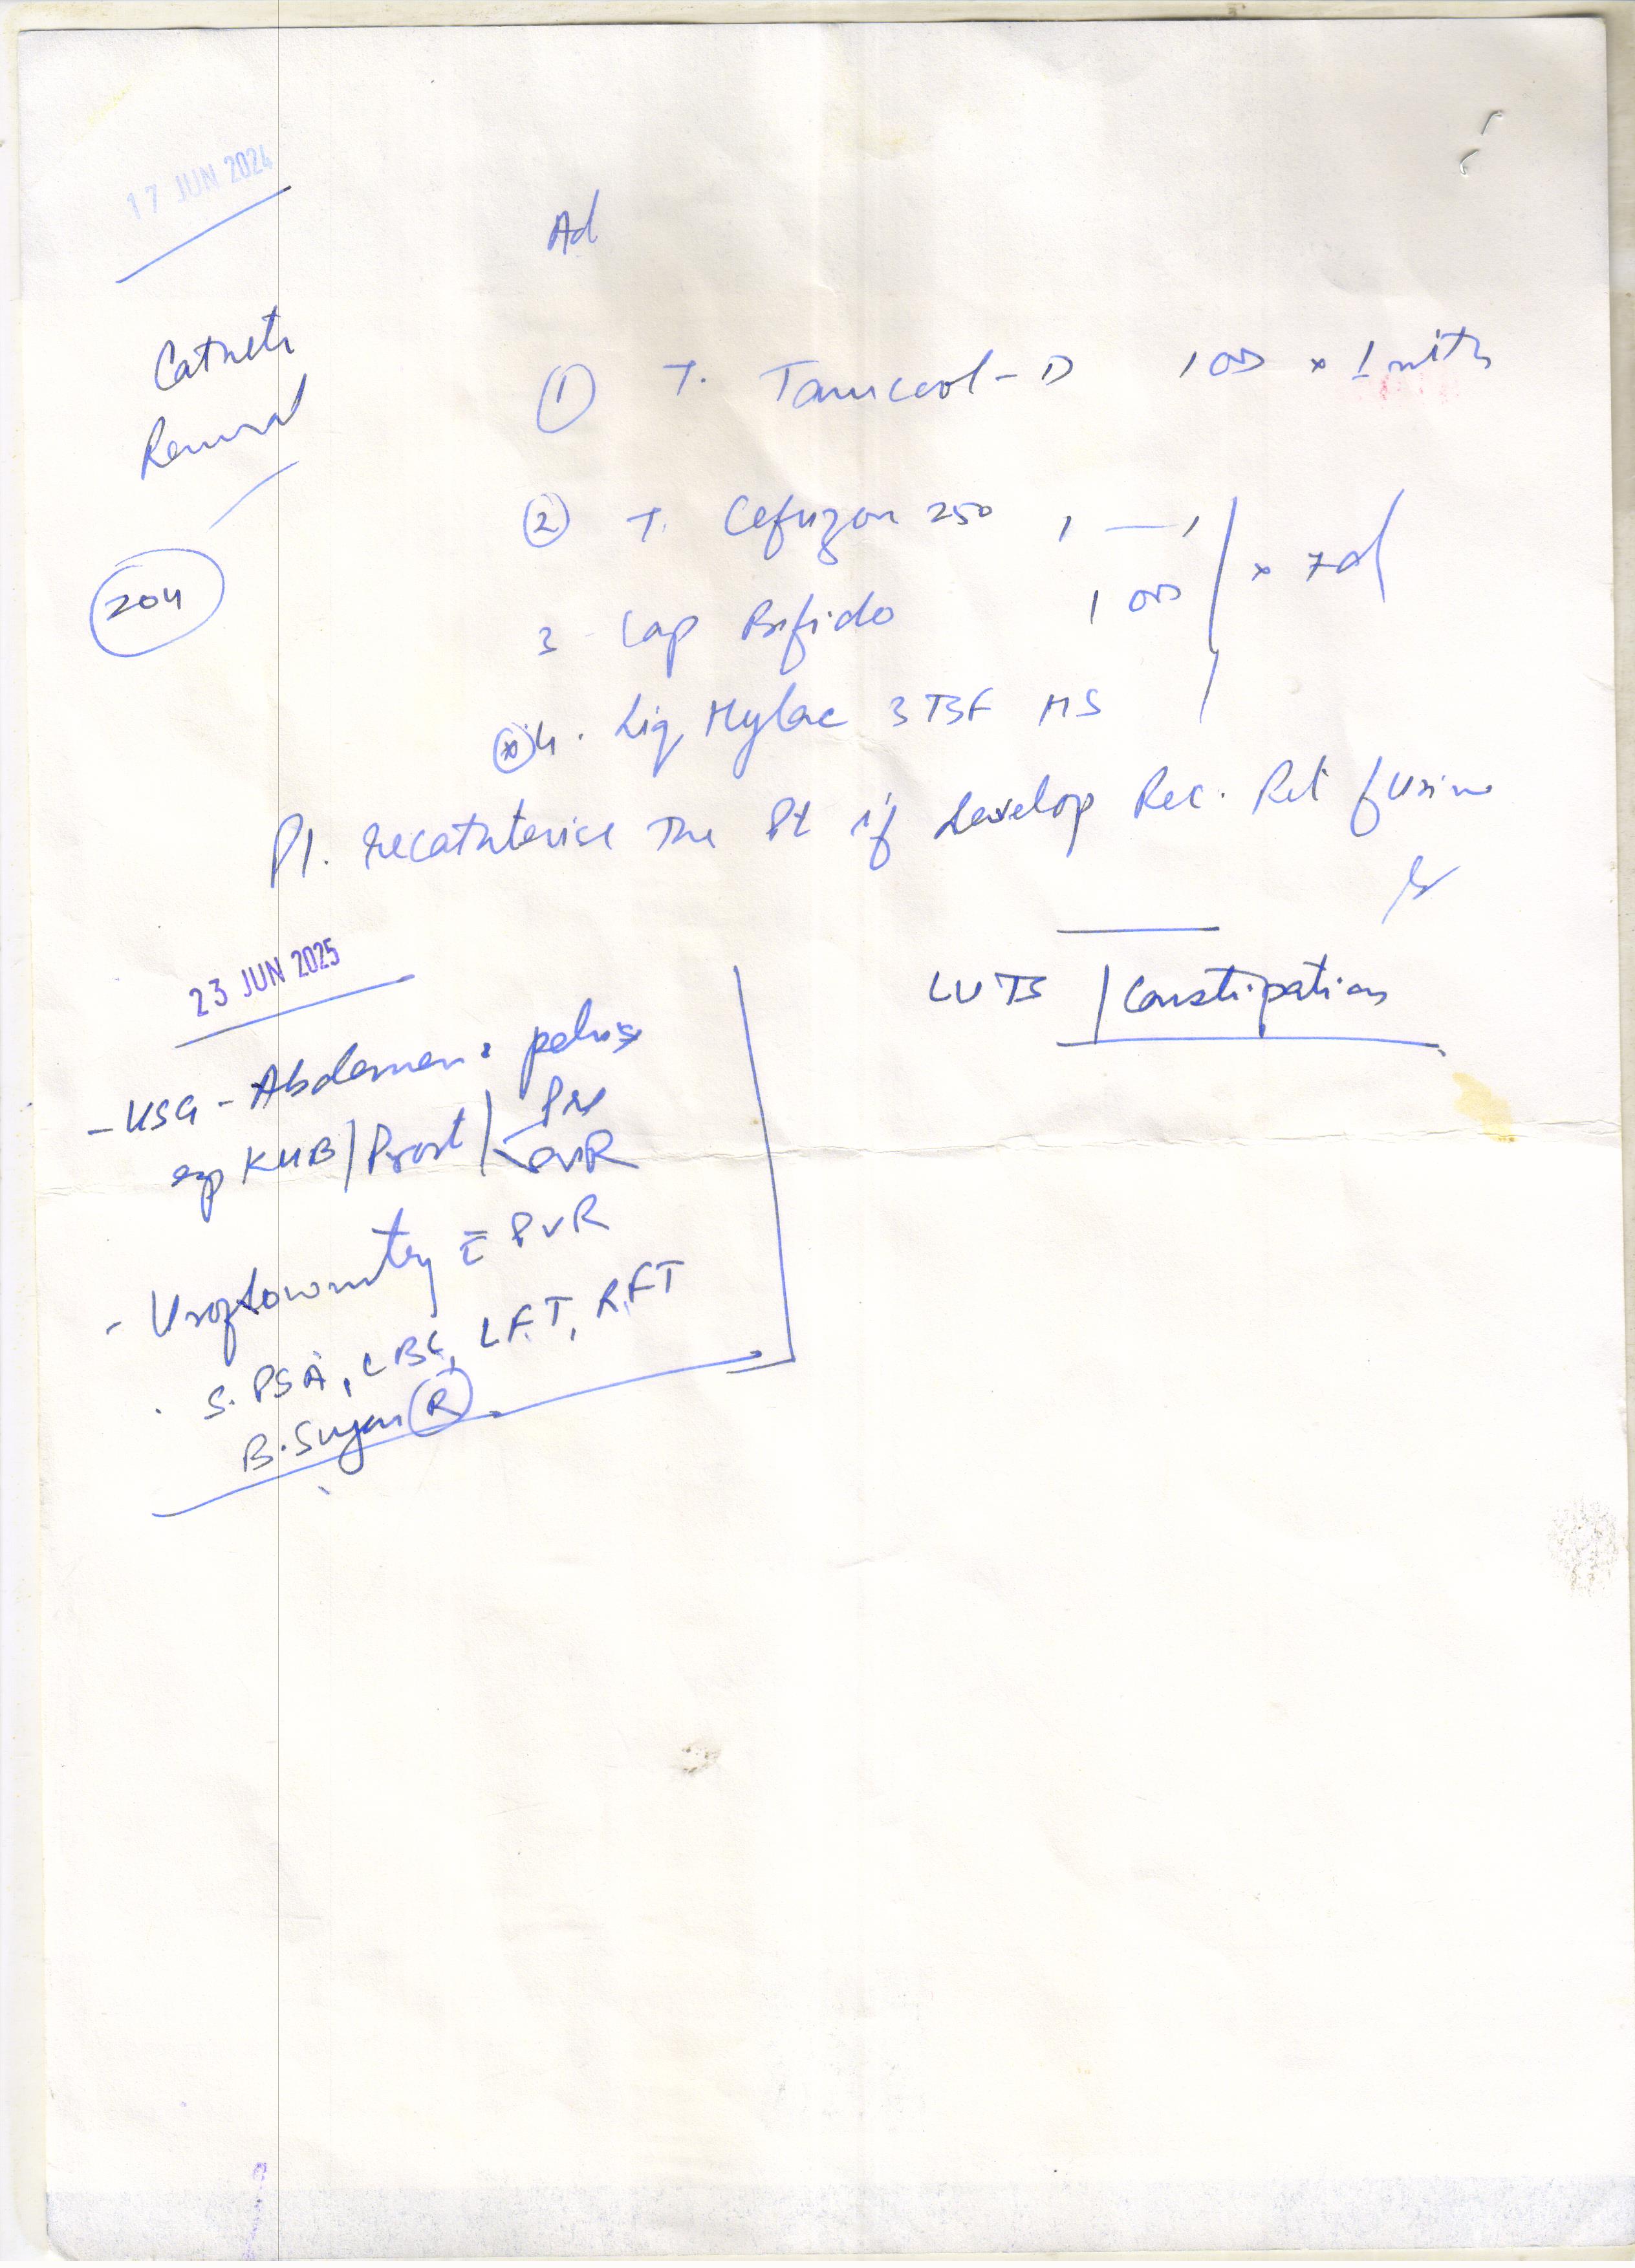 17 JUN 2024
Ad
Catheter
Removal
204
① T. Tamcool-D 1 OD x 1 mth
② T. Cefuzon 250 1 — 1
x 7d
3 Cap Bifido 1 OD
4. Liq Mylac 3 TSF HS
Pl. recatheterise The Pt if develop Rec. Ret of Urine
23 JUN 2025
LUTS / Constipation
- USG - Abdomen & pelvis
esp KUB / Prost / Pre PVR
- Uroflowmetry c̄ PVR
. S. PSA, CBC, LFT, RFT
B. Sugar (R)